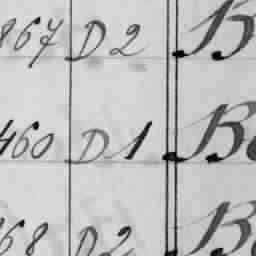 867 D2 B
460 D1 Be
68 D2 Be